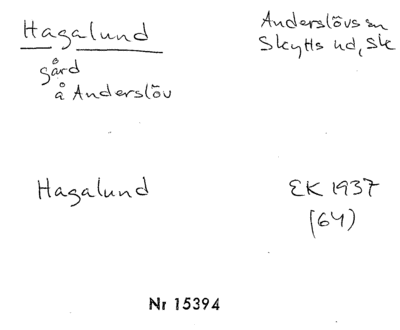 Hagalund
Anderslövs sn
Skytts hd, Sk
gård
å Anderslöv
Hagalund
EK 1937
(64)
Nr 15394